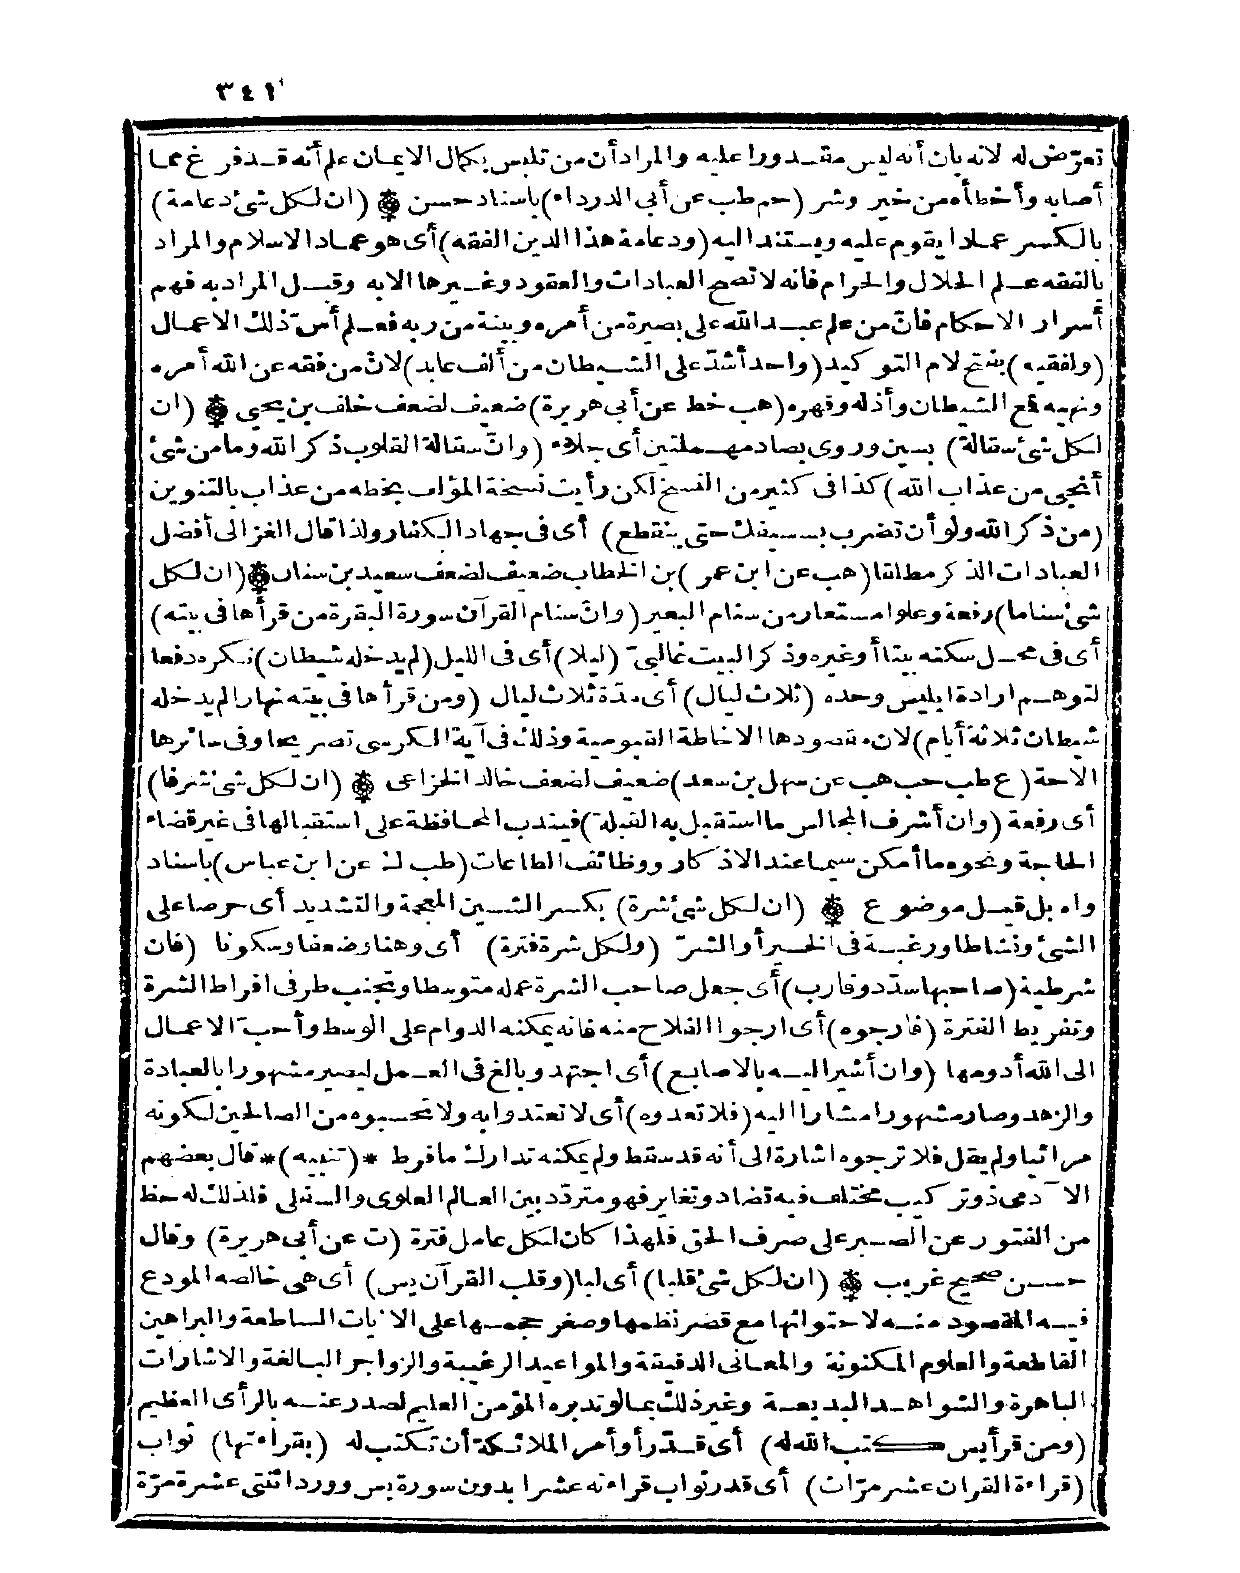 ٣٤١
تعرّض له لانه بان أنه ليس مقدورا عليه والمراد أن من تلبس بكمال الايمان علم أنه قد فرغ مما
أصابه وأخطأه من خير وشر (حم طب عن أبى الدرداء) باسناد حسن ۞ (ان لكل شئ دعامة)
بالكسر عمادا يقوم عليه ويستند اليه (ودعامة هذا الدين الفقه) أى هو عماد الاسلام والمراد
بالفقه علم الحلال والحرام فانه لا تصح العبادات والعقود وغيرها الا به وقيل المراد به فهم
أسرار الاحكام فانّ من علم عبد الله على بصيرة من أمره وبينة من ربه فعلم أسّ ذلك الاعمال
(ولفقيه) بفتح لام التوكيد (واحد أشدّ على الشيطان من ألف عابد) لانّ من فقه عن الله أمره
ونهيه قمع الشيطان وأذله وقهره (هب خط عن أبى هريرة) ضعيف لضعف خلف بن يحيى ۞ (ان
لكل شئ سقالة) بسين وروى بصاد مهملتين أى جلاء (وانّ سقالة القلوب ذكر الله وما من شئ
أنجى من عذاب الله) كذا فى كثير من النسخ لكن رأيت نسخة المؤلف بخطه من عذاب بالتنوين
(من ذكر الله ولو أن تضرب بسيفك حتى ينقطع) أى فى جهاد الكفار ولذا قال الغزالى أفضل
العبادات الذكر مطلقا (هب عن ابن عمر) بن الخطاب ضعيف لضعف سعيد بن سنان ۞ (ان لكل
شئ سناما) رفعة وعلوا مستعار من سنام البعير (وانّ سنام القرآن سورة البقرة من قرأها فى بيته)
أى فى محل سكنه بيتا أو غيره وذكر البيت غالبىّ (ليلا) أى فى الليل (لم يدخله شيطان) نكره دفعا
لتوهم ارادة ابليس وحده (ثلاث ليال) أى مدّة ثلاث ليال (ومن قرأها فى بيته نهارا لم يدخله
شيطان ثلاثة أيام) لان مقصودها الاحاطة القيومية وذلك فى آية الكرسى تصريحا وفى سائرها
الاحة (ع طب حب هب عن سهل بن سعد) ضعيف لضعف خالد الخزاعى ۞ (ان لكل شئ شرفا)
أى رفعة (وان أشرف المجالس ما استقبل به القبلة) فيندب المحافظة على استقبالها فى غير قضاء
الحاجة ونحوه ما أمكن سيما عند الاذكار ووظائف الطاعات (طب ك عن ابن عباس) باسناد
واه بل قيل موضوع ۞ (ان لكل شئ شرة) بكسر الشين المعجمة والتشديد أى حرصا على
الشئ ونشاطا ورغبة فى الخير أو الشرّ (ولكل شرة فترة) أى وهنا وضعفا وسكونا (فان
شرطية (صاحبها سدّد وقارب) أى جعل صاحب الشرة عمله متوسطا وتجنب طرفى افراط الشرة
وتفريط الفترة (فارجوه) أى ارجوا الفلاح منه فانه يمكنه الدوام على الوسط وأحبّ الاعمال
الى الله أدومها (وان أشير اليه بالاصابع) أى اجتهد وبالغ فى العمل ليصير مشهورا بالعبادة
والزهد وصار مشهورا مشارا اليه (فلا تعدوه) أى لا تعتدوا به ولا تحسبوه من الصالحين لكونه
مرائيا ولم يقل فلا ترجوه اشارة الى أنه قد سقط ولم يمكنه تدارك ما فرط *(تنبيه)* قال بعضهم
الآدمى ذو تركيب مختلف فيه تضاد وتغاير فهو متردّد بين العالم العلوى والسفلى فلذلك له حظ
من الفتور عن الصبر على صرف الحق فلهذا كان لكل عامل فترة (ت عن أبى هريرة) وقال
حسن صحيح غريب ۞ (ان لكل شئ قلبا) أى لبا (وقلب القرآن يس) أى هى خالصه المودع
فيه المقصود منه لاحتوائها مع قصر نظمها وصغر حجمها على الآيات الساطعة والبراهين
القاطعة والعلوم المكنونة والمعانى الدقيقة والمواعيد الرغيبة والزواجر البالغة والاشارات
الباهرة والشواهد البديعة وغير ذلك بما لو تدبره المؤمن العليم لصدر عنه بالرأى العظيم
(ومن قرأ يس كتب الله له) أى قدّر أو أمر الملائكة أن تكتب له (بقراءتها) ثواب
(قراءة القران عشر مرّات) أى قدر ثواب قراءته عشرا بدون سورة يس وورد اثنتى عشرة مرّة